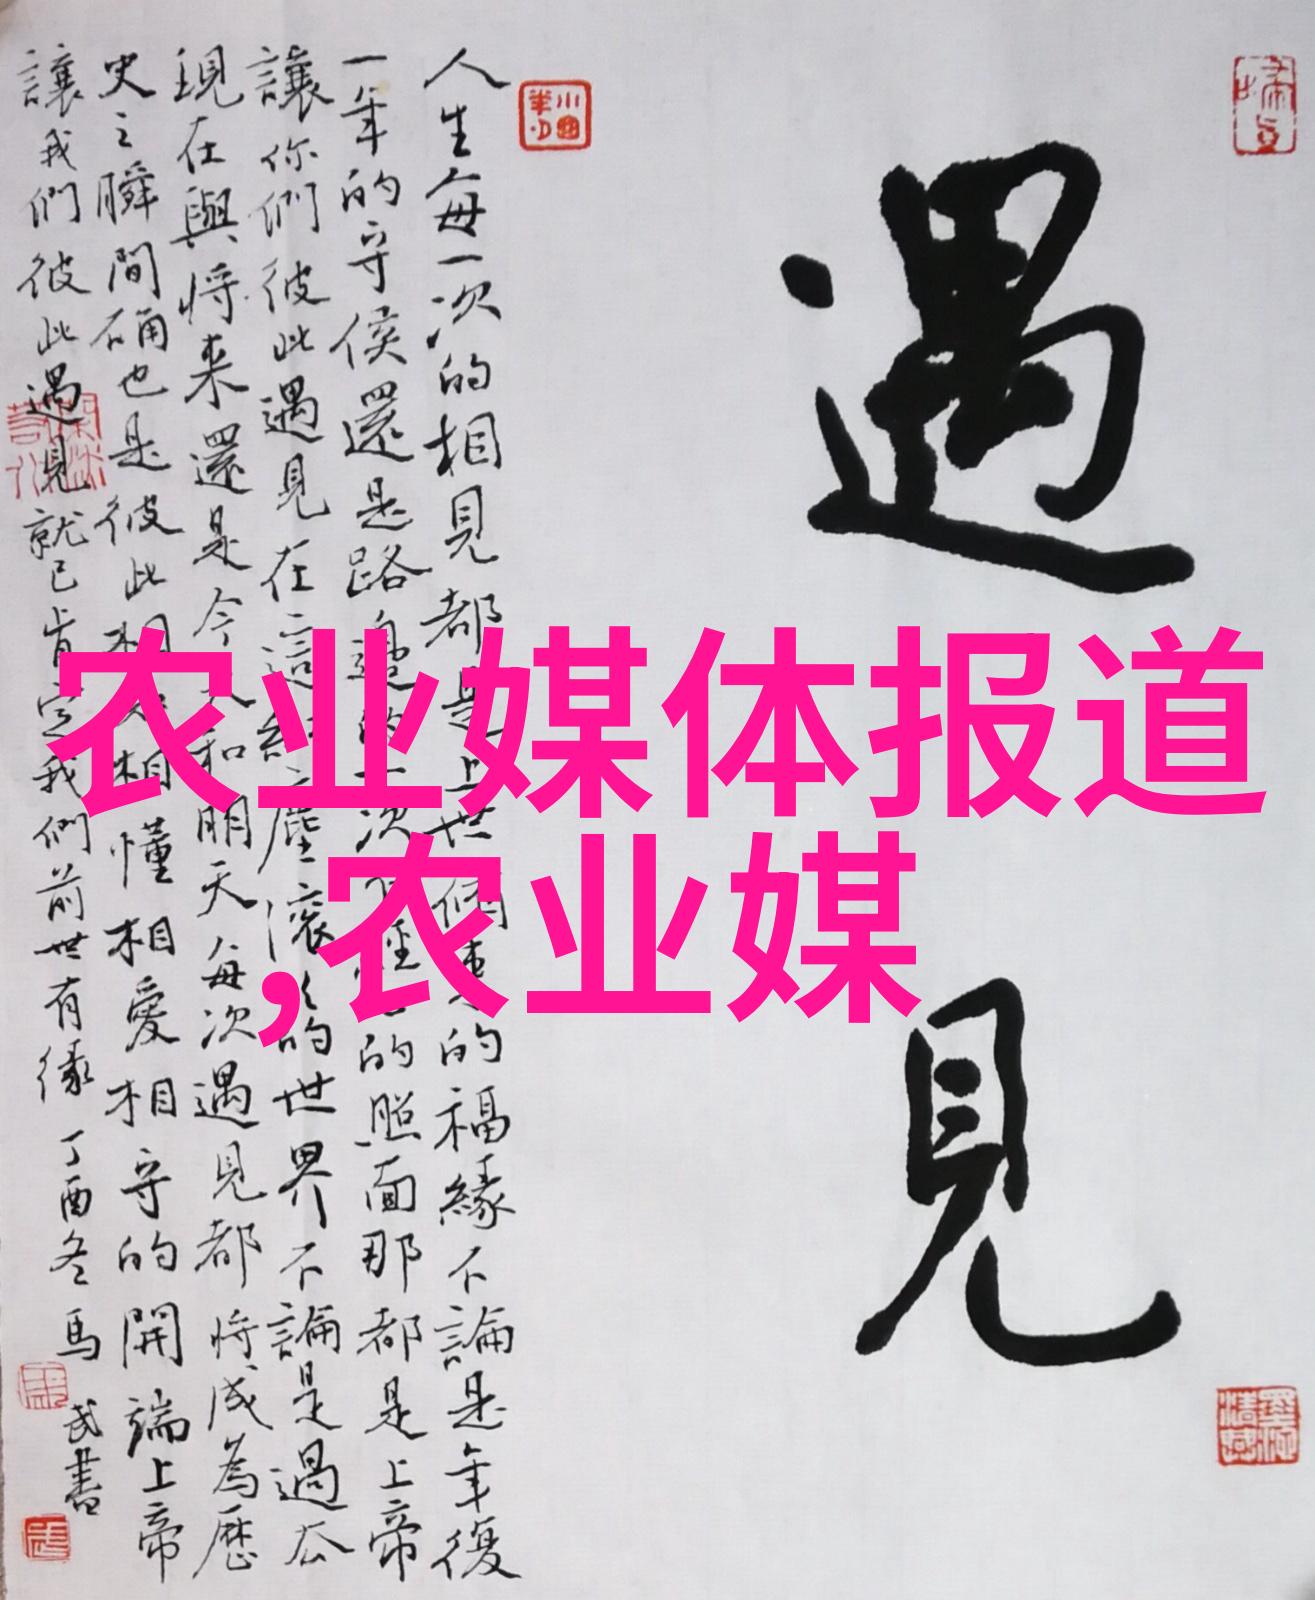 遇見
人生每一次的相見都是上世的福緣不論是年復
一年的守侯還是路邊的一次的照面那都是上帝
讓你們彼此遇見在這紅塵滾滾的世界不論是過去
現在與將来還是今天和明天每次遇見都将成為歷
史之瞬間确也是彼此相相懂相愛相守的開端上帝
讓我們彼此遇見就已肯定我們前世有缘
丁酉冬馬
武書
农业媒体报道
,农业媒